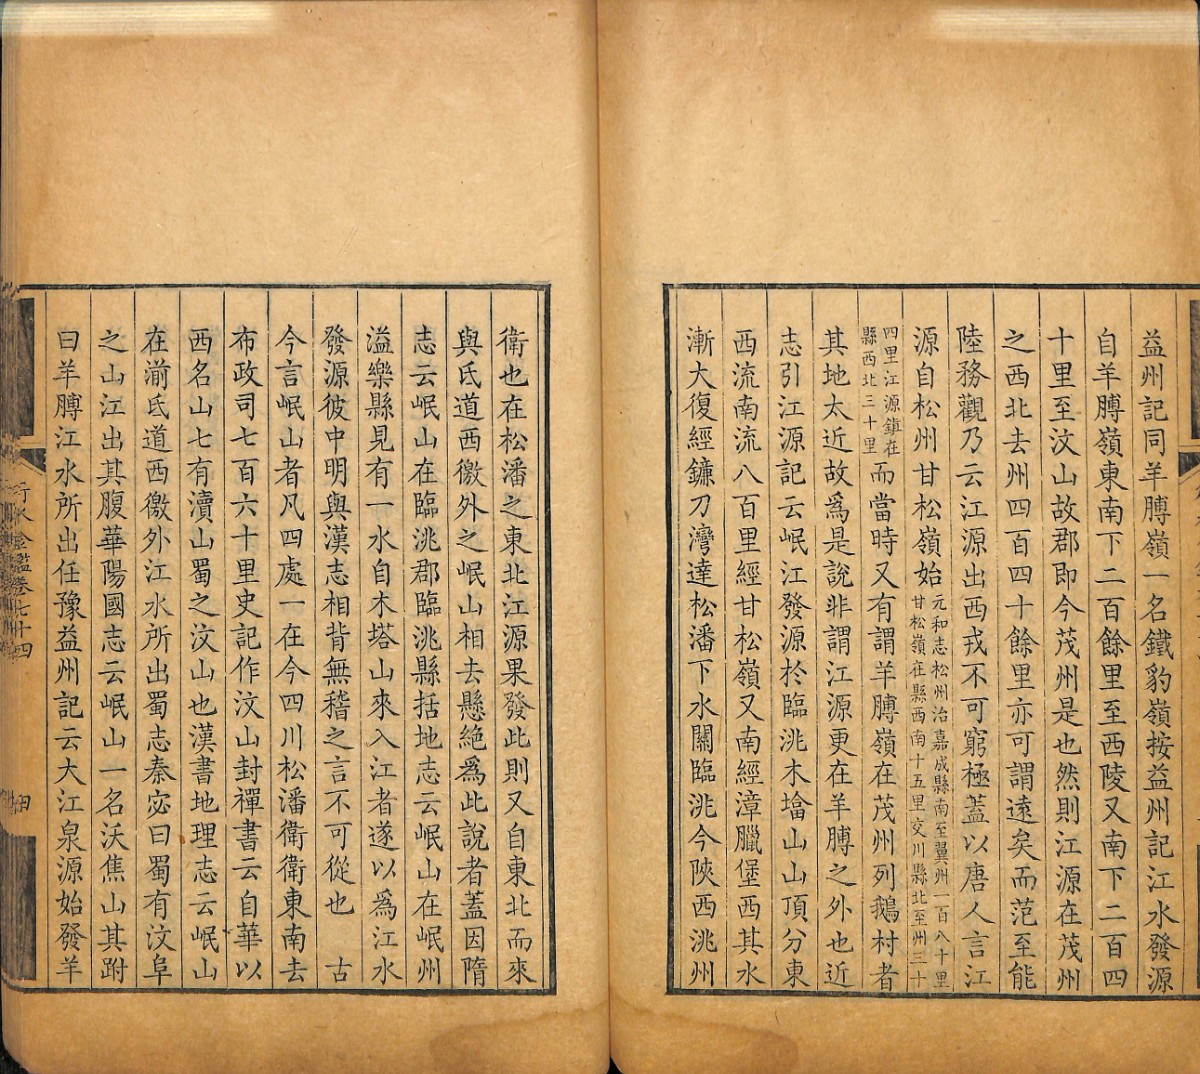 益州記同羊膊嶺一名鐵豹嶺按益州記江水發源
自羊膊嶺東南下二百餘里至西陵又南下二百四
十里至汶山故郡即今茂州是也然則江源在茂州
之西北去州四百四十餘里亦可謂遠矣而范至能
陸務觀乃云江源出西戎不可窮極蓋以唐人言江
源自松州甘松嶺始元和志松州治嘉成縣南至翼州一百八十里
甘松嶺在縣西南十五里交川縣北至州三十
四里江源鎮在
縣西北三十里而當時又有謂羊膊嶺在茂州列鵝村者
其地太近故爲是說非謂江源更在羊膊之外也近
志引江源記云岷江發源於臨洮木㙮山山頂分東
西流南流八百里經甘松嶺又南經漳臘堡西其水
漸大復經鐮刀灣達松潘下水關臨洮今陝西洮州
衛也在松潘之東北江源果發此則又自東北而來
與氐道西徼外之岷山相去懸絶爲此說者蓋因隋
志云岷山在臨洮郡臨洮縣括地志云岷山在岷州
溢樂縣見有一水自木塔山來入江者遂以爲江水
發源彼中明與漢志相背無稽之言不可從也　古
今言岷山者凡四處一在今四川松潘衛衛東南去
布政司七百六十里史記作汶山封禪書云自華以
西名山七有瀆山蜀之汶山也漢書地理志云岷山
在湔氐道西徼外江水所出蜀志秦宓曰蜀有汶阜
之山江出其腹華陽國志云岷山一名沃焦山其跗
曰羊膊江水所出任豫益州記云大江泉源始發羊
行水金鑑卷七十四